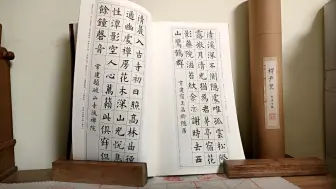 清溪深不測隱處唯孤雲松際
露微月清光猶為君茅亭宿花
影藥院滋苔紋余亦謝時去西
山鸞鶴群 常建宿王昌齡隱居
清晨入古寺初日照高林曲徑
通幽處禪房花木深山光悅鳥
性潭影空人心萬籟此俱寂但
餘鐘磬音 常建題破山寺後禪院